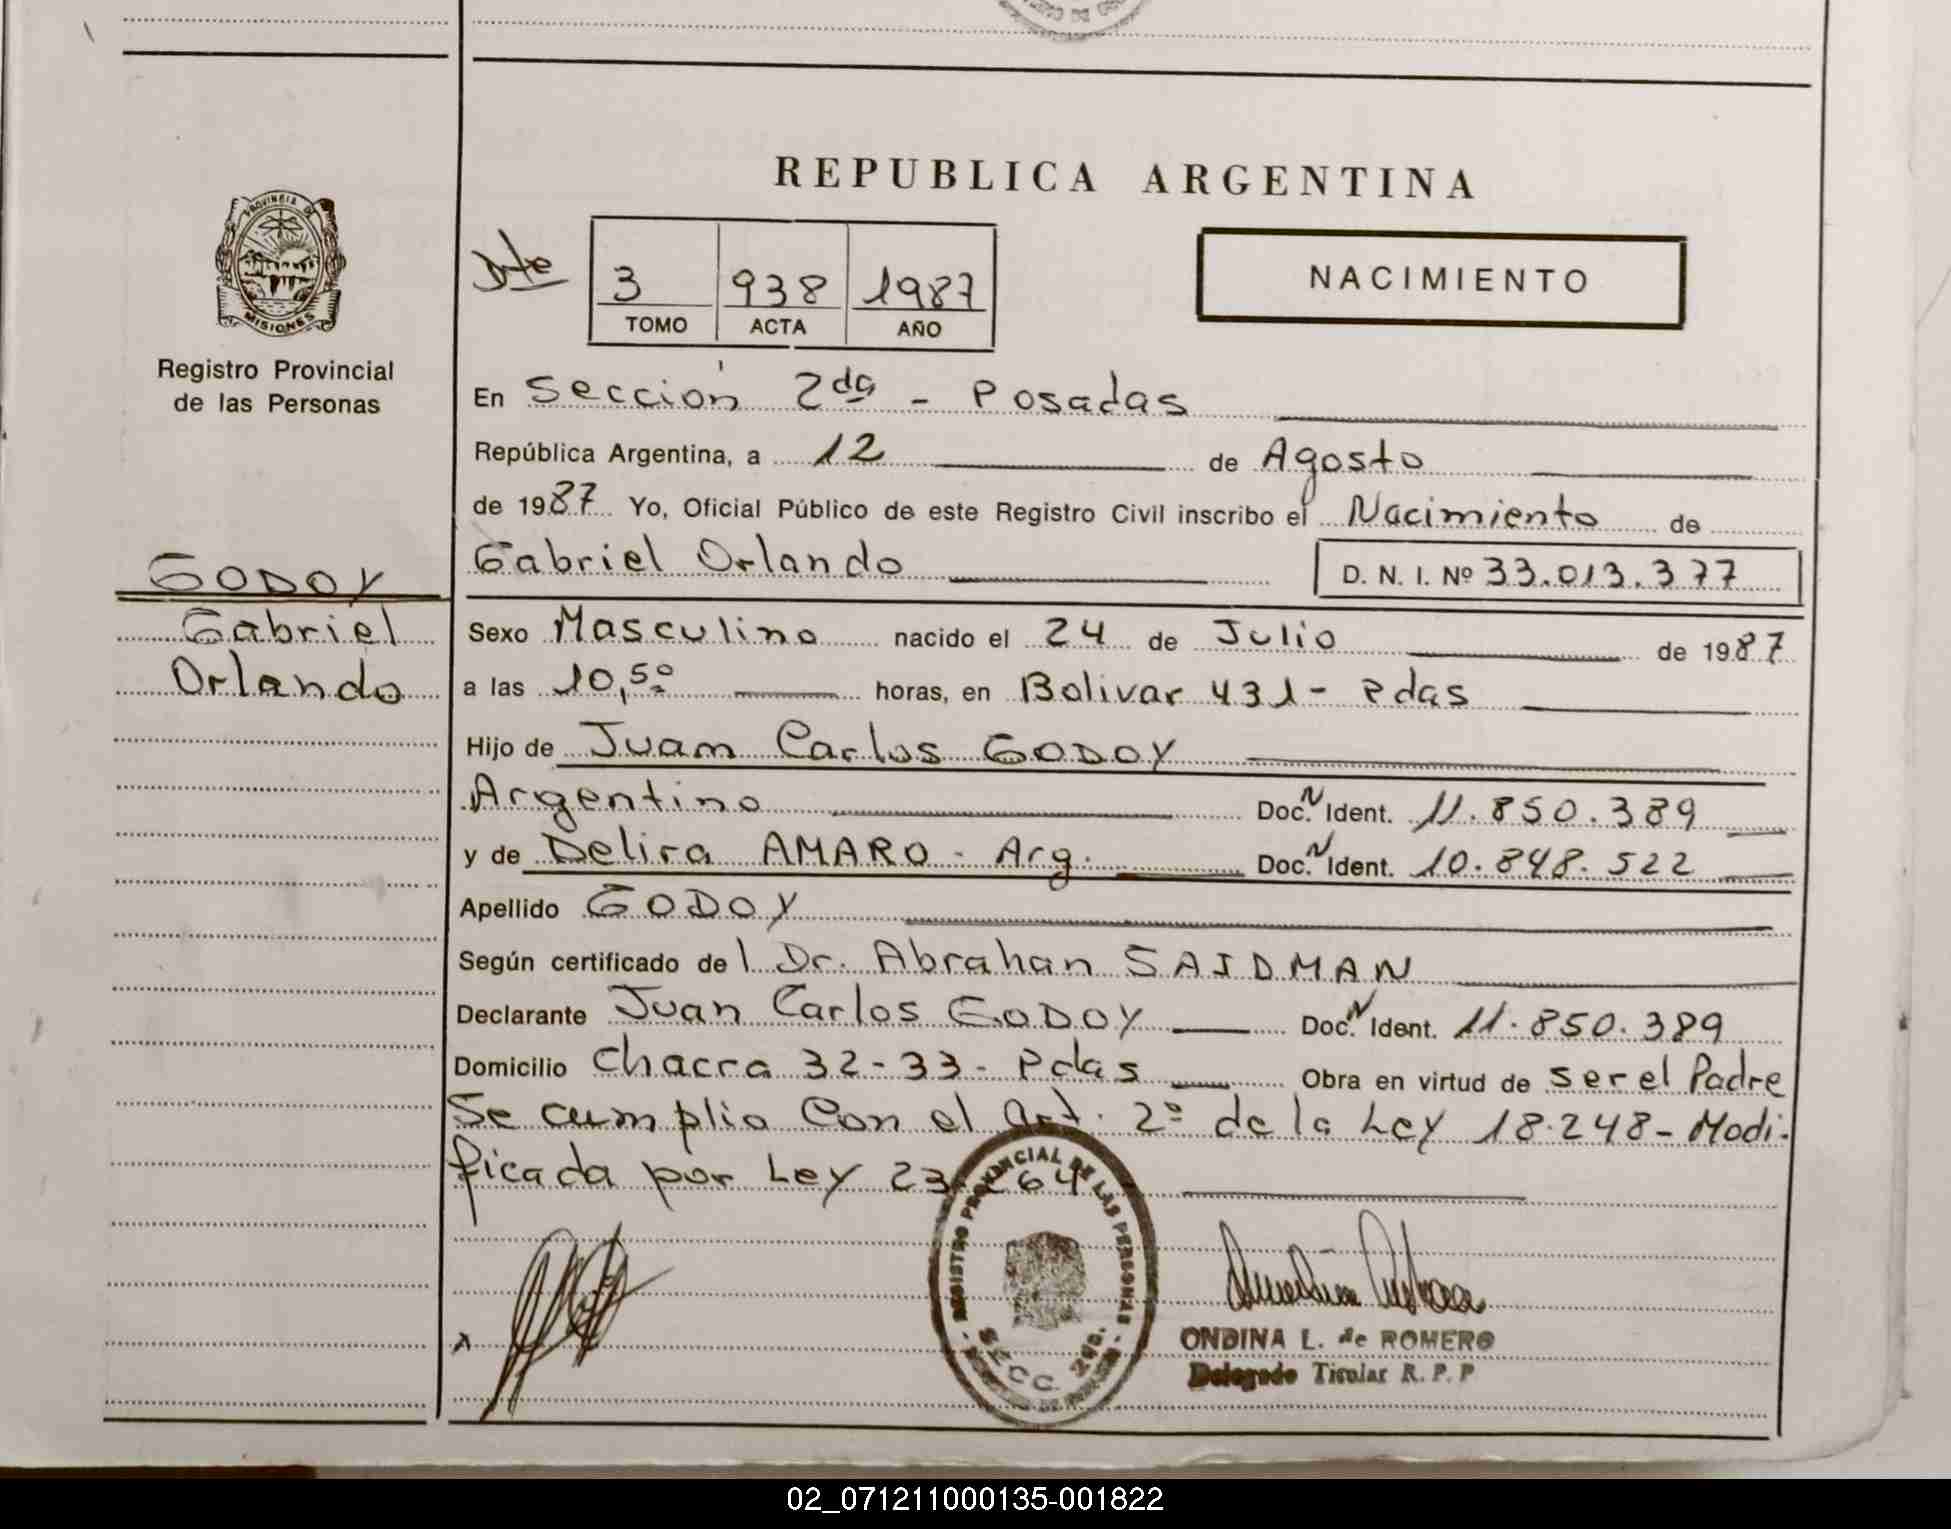 REPUBLICA ARGENTINA
PROVINCIA DE
MISIONES
Registro Provincial
de las Personas
Dte
3 938 1987
TOMO ACTA AÑO
NACIMIENTO
En Sección 2da - Posadas
República Argentina, a 12 de Agosto
de 1987 Yo, Oficial Público de este Registro Civil inscribo el Nacimiento de
Gabriel Orlando D. N. I. Nº 33.013.377
GODOY
Gabriel
Orlando
Sexo Masculino nacido el 24 de Julio de 1987
a las 10,50 horas, en Bolivar 431 - Pdas
Hijo de Juan Carlos GODOY
Argentino Doc. N Ident. 11.850.389
y de Delira AMARO - Arg. Doc. N Ident. 10.848.522
Apellido GODOY
Según certificado de l Dr. Abrahan SAIDMAN
Declarante Juan Carlos GODOY Doc. N Ident. 11.850.389
Domicilio Chacra 32-33- Pdas Obra en virtud de ser el Padre
Se cumplio Con el Art. 2º de la Ley 18.248 - Modi-
ficada por Ley 23.264
REGISTRO PROVINCIAL DE LAS PERSONAS
SECC. 2da.
ONDINA L. de ROMERO
Delegado Titular R. P. P
02_071211000135-001822